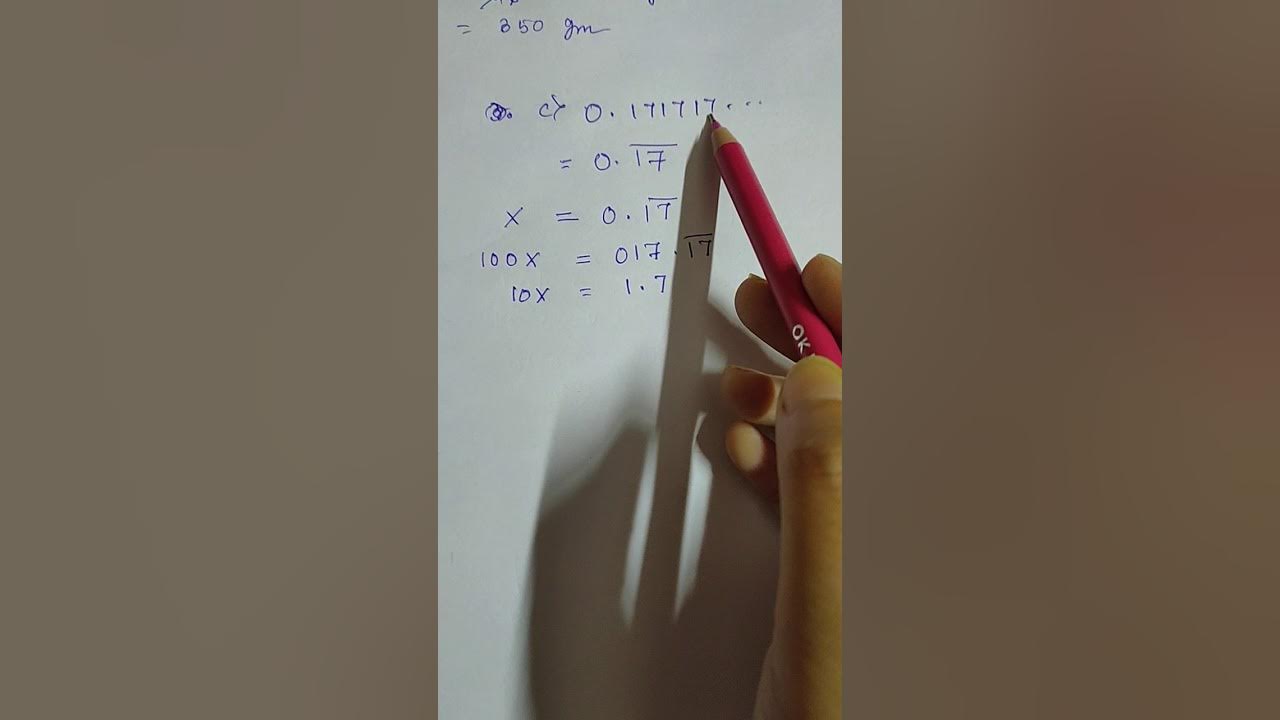 = 350 gm
c) 0.171717...
= 0.1̅7̅
x = 0.1̅7̅
100x = 017.1̅7̅
10x = 1.7
OK